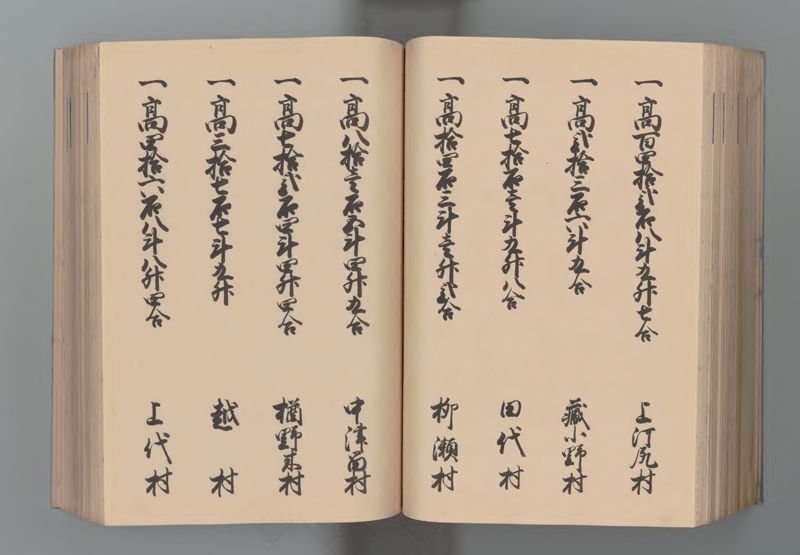 一高百四拾弐石八斗五升七合 上汀尻村
一高弐拾三石六斗五合 蔵小野村
一高七拾石壱斗五升八合 田代村
一高拾四石三斗壱升弐合 柳瀬村
一高八拾壱石五斗四升九合 中津留村
一高七拾弐石四斗四升四合 楢野木村
一高三拾七石七斗五升 越村
一高四拾六石八斗八升四合 上代村